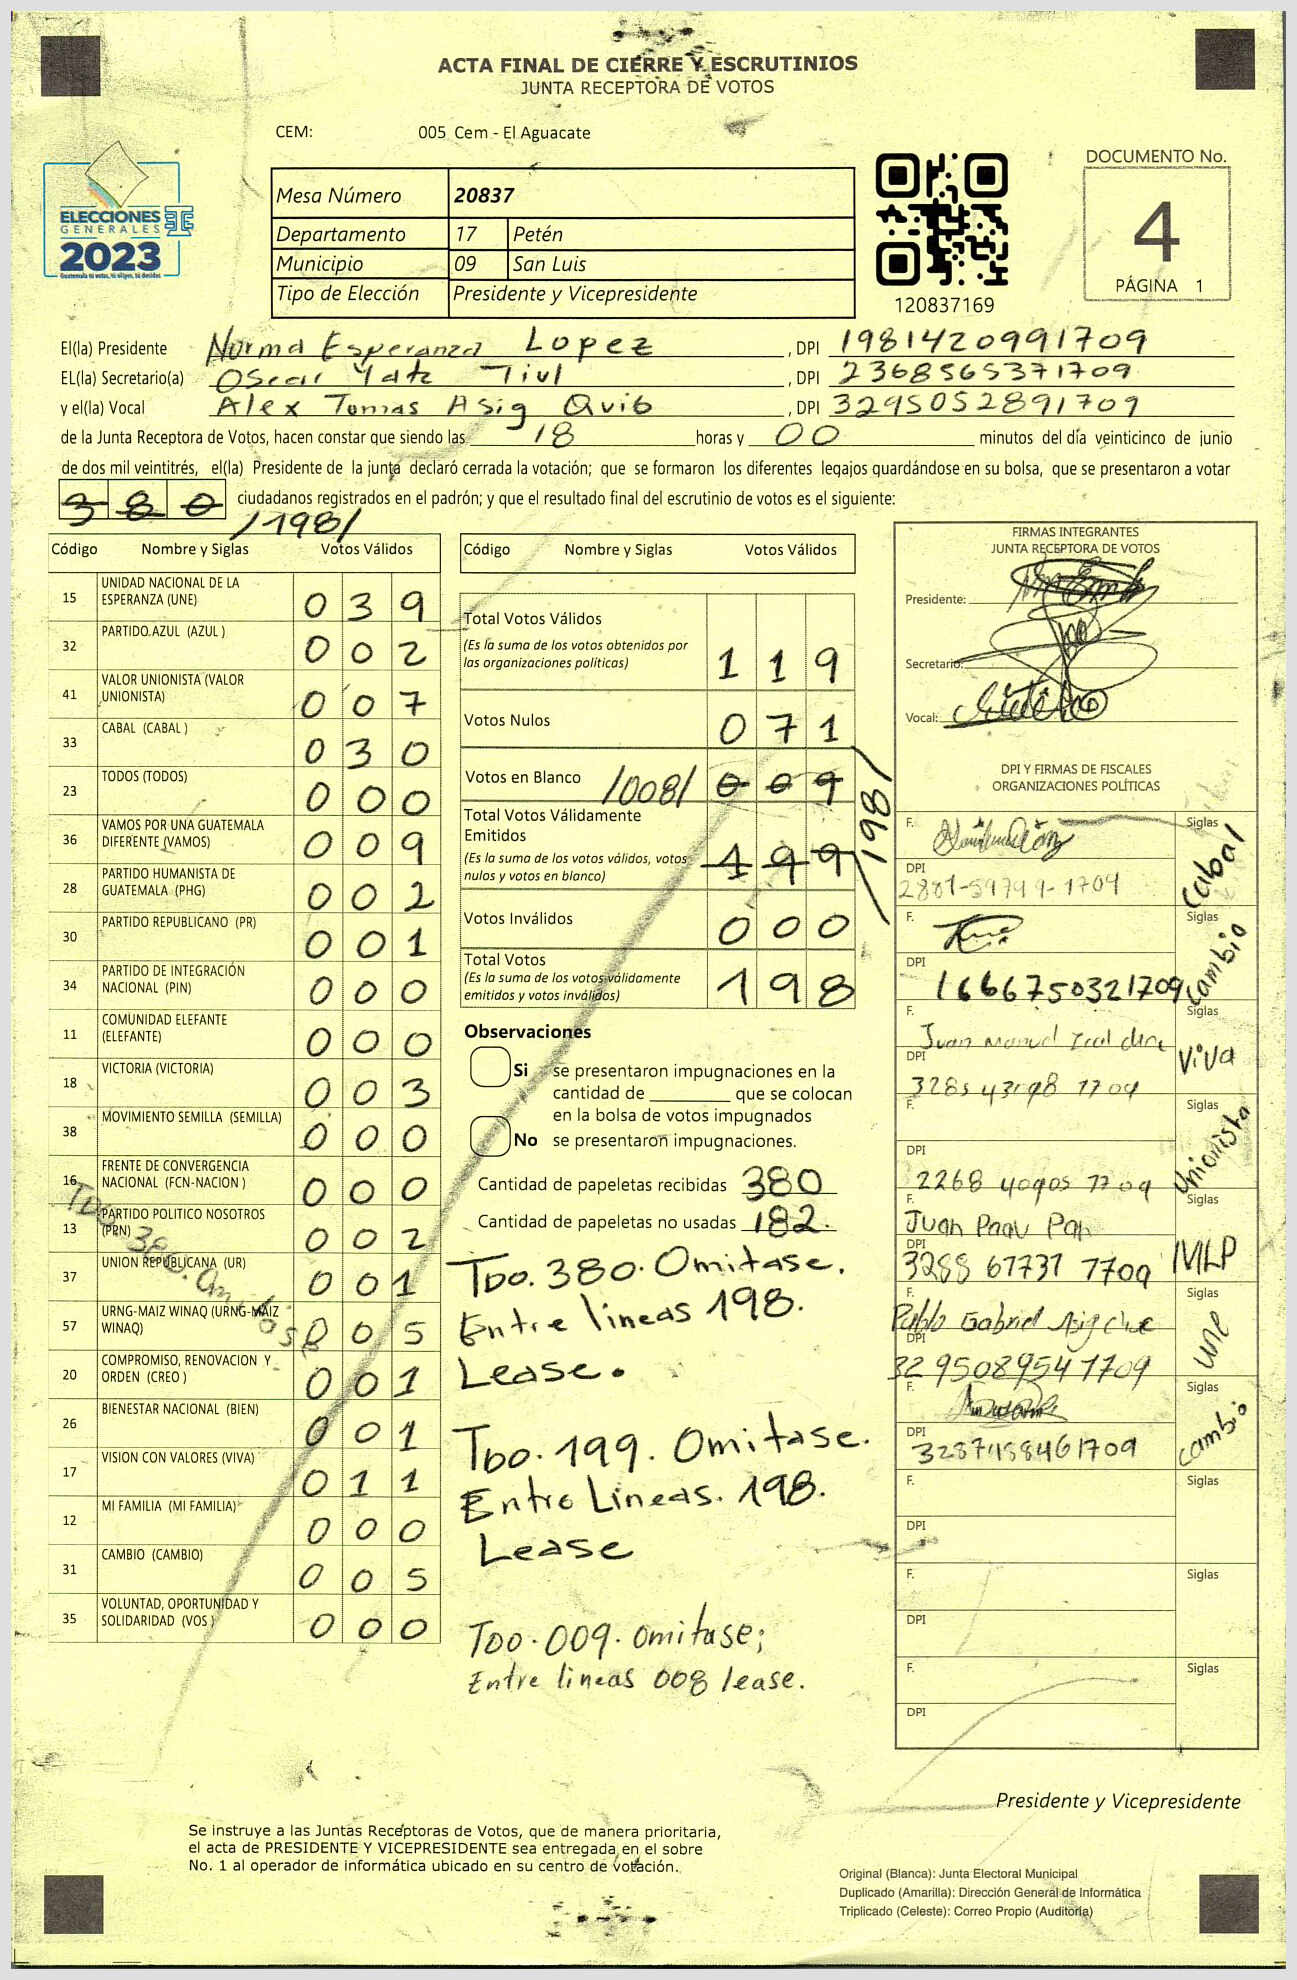 ACTA FINAL DE CIERRE Y ESCRUTINIOS
JUNTA RECEPTORA DE VOTOS
CEM: 005 Cem - El Aguacate
ELECCIONES
GENERALES
2023
Guatemala tú votas, tú eliges, tú decides
Mesa Número 20837
Departamento 17 Petén
Municipio 09 San Luis
Tipo de Elección Presidente y Vicepresidente
120837169
DOCUMENTO No.
4
PÁGINA 1
El(la) Presidente Norma Esperanza Lopez , DPI 1981420991709
EL(la) Secretario(a) Oscar Yatz Tiul , DPI 2368565371709
y el(la) Vocal Alex Tomas Asig Quib , DPI 3295052891709
de la Junta Receptora de Votos, hacen constar que siendo las 18 horas y 00 minutos del día veinticinco de junio
de dos mil veintitrés, el(la) Presidente de la junta declaró cerrada la votación; que se formaron los diferentes legajos guardándose en su bolsa, que se presentaron a votar
380 ciudadanos registrados en el padrón; y que el resultado final del escrutinio de votos es el siguiente:
/198/
Código Nombre y Siglas Votos Válidos
15 UNIDAD NACIONAL DE LA ESPERANZA (UNE) 039
32 PARTIDO AZUL (AZUL ) 002
41 VALOR UNIONISTA (VALOR UNIONISTA) 007
33 CABAL (CABAL ) 030
23 TODOS (TODOS) 000
36 VAMOS POR UNA GUATEMALA DIFERENTE (VAMOS) 009
28 PARTIDO HUMANISTA DE GUATEMALA (PHG) 002
30 PARTIDO REPUBLICANO (PR) 001
34 PARTIDO DE INTEGRACIÓN NACIONAL (PIN) 000
11 COMUNIDAD ELEFANTE (ELEFANTE) 000
18 VICTORIA (VICTORIA) 003
38 MOVIMIENTO SEMILLA (SEMILLA) 000
16 FRENTE DE CONVERGENCIA NACIONAL (FCN-NACION ) 000
13 PARTIDO POLITICO NOSOTROS (PPN) 002
37 UNION REPUBLICANA (UR) 001
57 URNG-MAIZ WINAQ (URNG-MAIZ WINAQ) 005
20 COMPROMISO, RENOVACION Y ORDEN (CREO ) 001
26 BIENESTAR NACIONAL (BIEN) 001
17 VISION CON VALORES (VIVA) 011
12 MI FAMILIA (MI FAMILIA) 000
31 CAMBIO (CAMBIO) 005
35 VOLUNTAD, OPORTUNIDAD Y SOLIDARIDAD (VOS ) 000
Código Nombre y Siglas Votos Válidos
Total Votos Válidos 119
(Es la suma de los votos obtenidos por
las organizaciones políticas)
Votos Nulos 071
Votos en Blanco /008/ 009
Total Votos Válidamente
Emitidos 199 /198/
(Es la suma de los votos válidos, votos
nulos y votos en blanco)
Votos Inválidos 000
Total Votos 198
(Es la suma de los votos válidamente
emitidos y votos inválidos)
Observaciones
Si se presentaron impugnaciones en la
cantidad de ________ que se colocan
en la bolsa de votos impugnados
No se presentaron impugnaciones.
Cantidad de papeletas recibidas 380
Cantidad de papeletas no usadas 182.
TDO. 380. Omitase.
Entre lineas 198.
Lease.
TDO. 199. Omitase.
Entre Lineas. 198.
Lease
TDO. 009. omitase;
Entre lineas 008 lease.
FIRMAS INTEGRANTES
JUNTA RECEPTORA DE VOTOS
Presidente:
Secretario:
Vocal:
DPI Y FIRMAS DE FISCALES
ORGANIZACIONES POLÍTICAS
F. Siglas Cabal
DPI
F. Siglas Cambio
DPI 1666750321709
F. Juan Manuel Siglas Viva
DPI
F. Siglas Unionista
DPI
F. Juan Siglas MLP
DPI 3288 67737 1709
F. Pablo Gabriel Asig Siglas une
DPI 3295089541709
F. Siglas cambio
DPI 3287458461709
F. Siglas
DPI
F. Siglas
DPI
F. Siglas
DPI
Presidente y Vicepresidente
Se instruye a las Juntas Receptoras de Votos, que de manera prioritaria,
el acta de PRESIDENTE Y VICEPRESIDENTE sea entregada en el sobre
No. 1 al operador de informática ubicado en su centro de votación.
Original (Blanca): Junta Electoral Municipal
Duplicado (Amarilla): Dirección General de Informática
Triplicado (Celeste): Correo Propio (Auditoría)